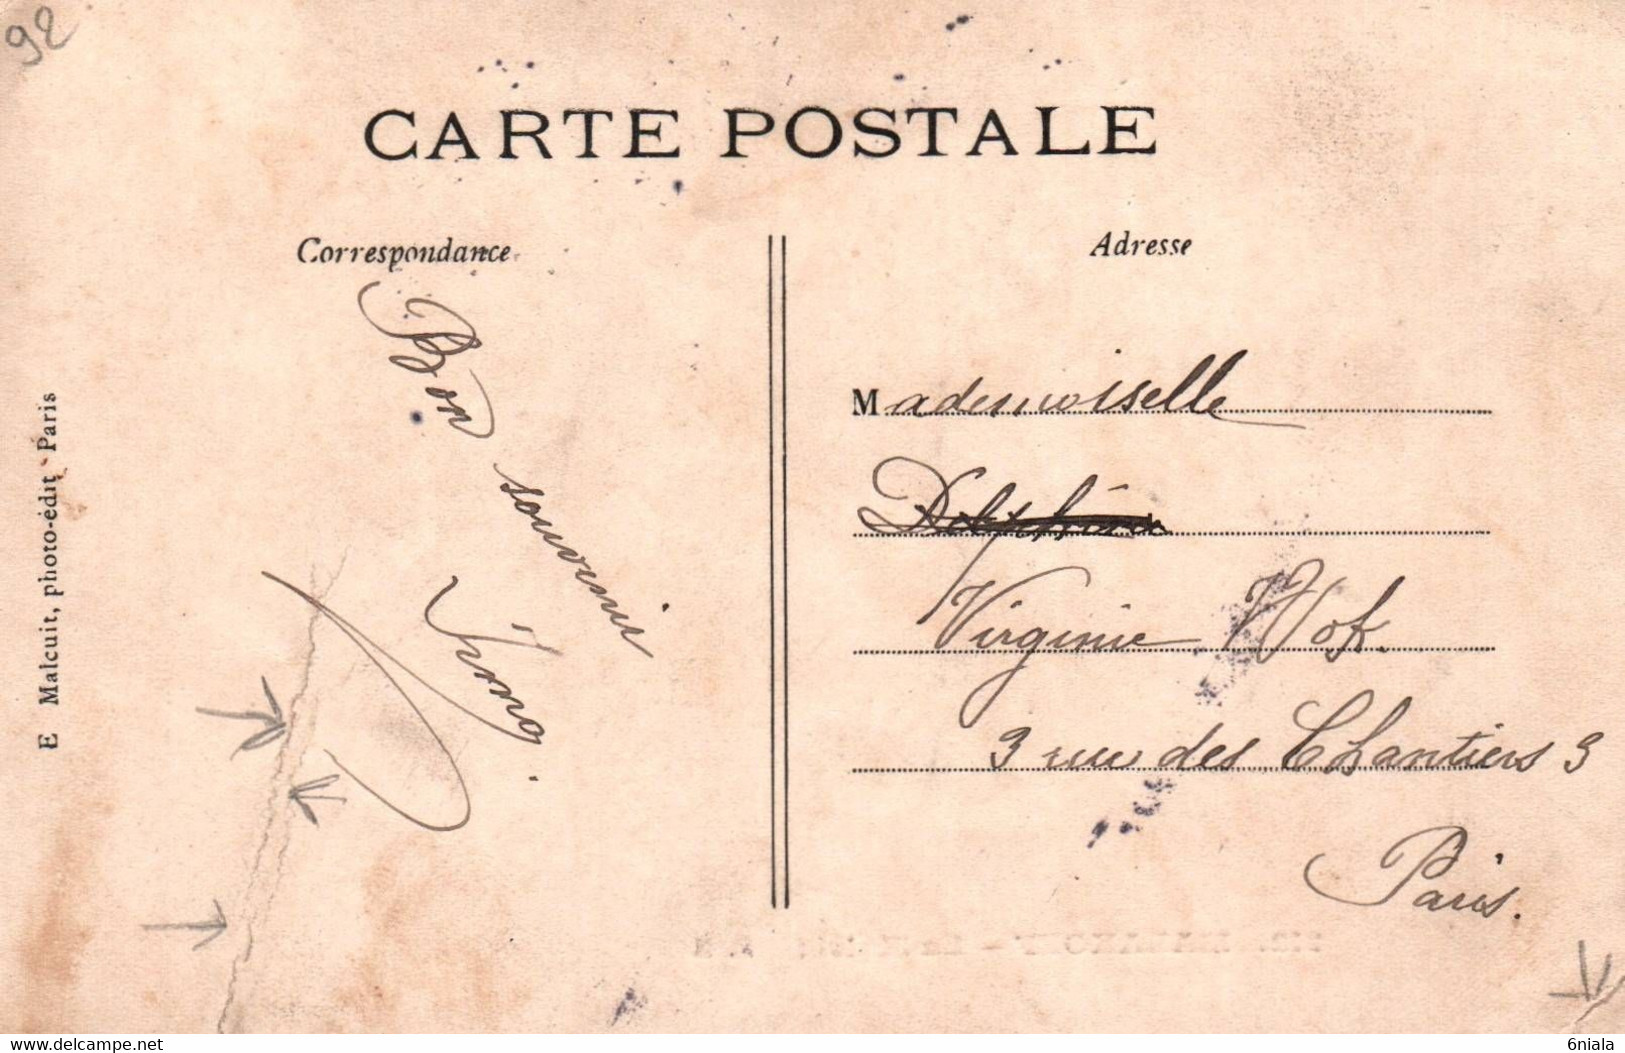 92
CARTE POSTALE
Correspondance
Adresse
Bon souvenir
Mademoiselle
Delphine
Virginie Hof.
3 rue des Chantiers 3
Paris.
E Malcuit, photo-édit Paris
www.delcampe.net
6niala